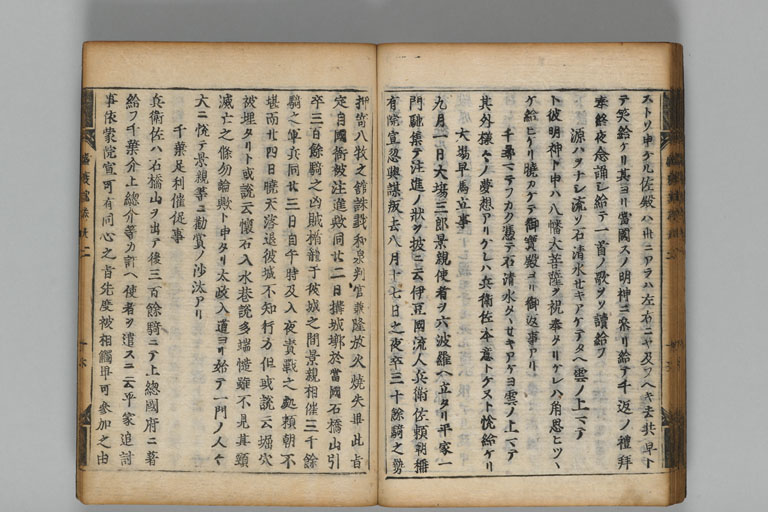 ストソ申ケル佐殿ハ世ニアラハ左右ニヤ及フヘキ去共早ト
テ笑給ケリ其ヨリ當國スノ明神ニ参リ給テ千返ノ禮拜
奉終夜念誦シ給テ一首ノ歌ヲソ讀給フ
源ハヲナシ流ソ石清水セキアケテタヘ雲ノ上マテ
ト彼明神ト申ハ八幡大菩薩ヲ祝奉タリケレハ角思ヒツヽ
ケ給ヒケリ暁カケテ御寶殿ヨリ御返事アリ
千尋マテフカク憑テ石清水タヽセキアケヨ雲ノ上マテ
其外様々ノ夢想アリケレハ兵衛佐本意トケヌト悦給ケリ
大場早馬立事
九月一日大場三郎景親使者ヲ六波羅ヘ立タリ平家一
門馳集テ注進ノ状ヲ披ニ云伊豆國流人兵衛佐頼朝稱
有院宣忽興謀叛去八月十七日之夜卒三十餘騎之勢
押寄八牧之舘誅戮和泉判官兼隆放火燒失畢此旨
定自國衙被注進歟同廿二日搆城墎於當國石橋山引
卒三百餘騎之凶賊楯籠于彼城之間景親相催三千餘
騎之軍兵同廿三日自午時及入夜責戰之處頼朝不
堪而廿四日暁天落退彼城不知行方但或説云堀穴
被埋タリト或説云懷石入水巷説多端慥雖不見其頸
滅亡之條勿論歟ト申タリ太政入道ヨリ始テ一門ノ人々
大ニ悦テ景親等ニ勸賞ノ沙汰アリ
千葉足利催促事
兵衛佐ハ石橋山ヲ出テ後三百餘騎ニテ上總國府ニ著
給フ千葉介上總介等カ許ヘ使者ヲ遣ス云平家追討
事依蒙院宣可有同心之旨先度被相觸畢可參加之由